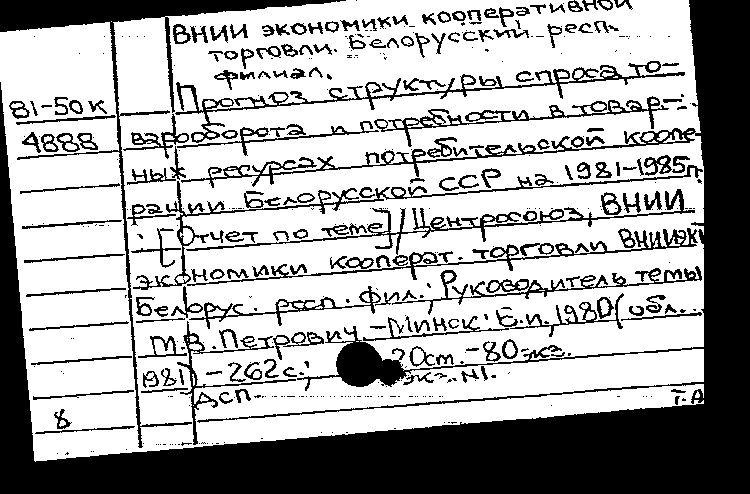 ВНИИ экономики кооперативной
торговли. Белорусский респ.
филиал.
Прогноз структуры спроса, то-
81-50к
4888 варооборота и потребности в товар-
ных ресурсах потребительской коопе-
рации Белорусской ССР на 1981-1985гг.
: [Отчет по теме] / Центросоюз, ВНИИ
экономики кооперат. торговли ВНИИЭКТ
Белорус. респ. фил.; Руководитель темы
М.В. Петрович. - Минск: Б.и., 1980 (обл.
1981). - 262с.; 20см. - 80экз.
ДСП. экз. №1.
8 Т-А